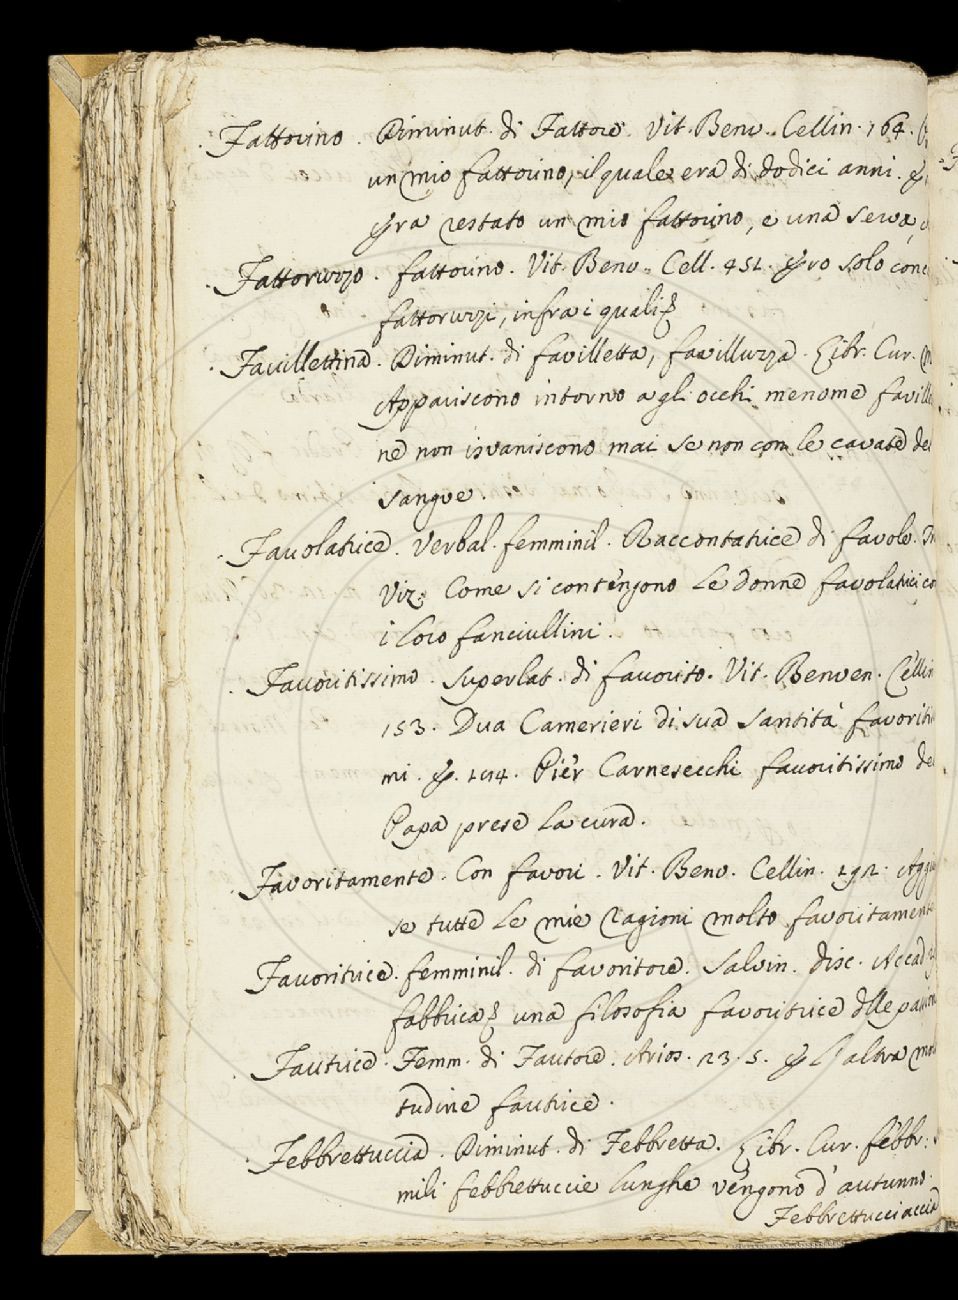 Fattorino. Diminut. di Fattore. Vit. Benv. Cellin. 164.
un mio fattorino, il quale era di dodici anni. E
Era restato un mio fattorino, e una serva,
Fattoruzzo. fattorino. Vit. Benv. Cell. 451. Ero solo con
fattoruzzi, infra i quali
Favillettina. Diminut. di favilletta, favilluzza. Libr. Cur.
Appariscono intorno agli occhi menome favill
ne non isvaniscono mai se non con le cavate de
sangue.
Favolatrice. Verbal. femminil. Raccontatrice di favole.
Viz. Come si contengono le donne favolatrici co
i loro fanciullini.
Favoritissimo. Superlat. di favorito. Vit. Benven. Cellin
153. Dua Camerieri di sua Santità favoriti
mi. E. 194. Pier Carnesecchi favoritissimo de
Papa prese la cura.
Favoritamente. Con favori. Vit. Benv. Cellin. Aggiu
se tutte le mie ragioni molto favoritament
Favoritrice. femminil. di favoritore. Salvin. disc. Accad
fabbrica una filosofia favoritrice dlle
Fautrice. Femm. di Fautore. Arios. 23. 5. E l'altra mol
tudine fautrice.
Febbrettuccia. Diminut. di Febbretta. Libr. Cur. febbr.
mili febbrettuccie lunghe vengono d'autunno.
Febbrettucciaccia